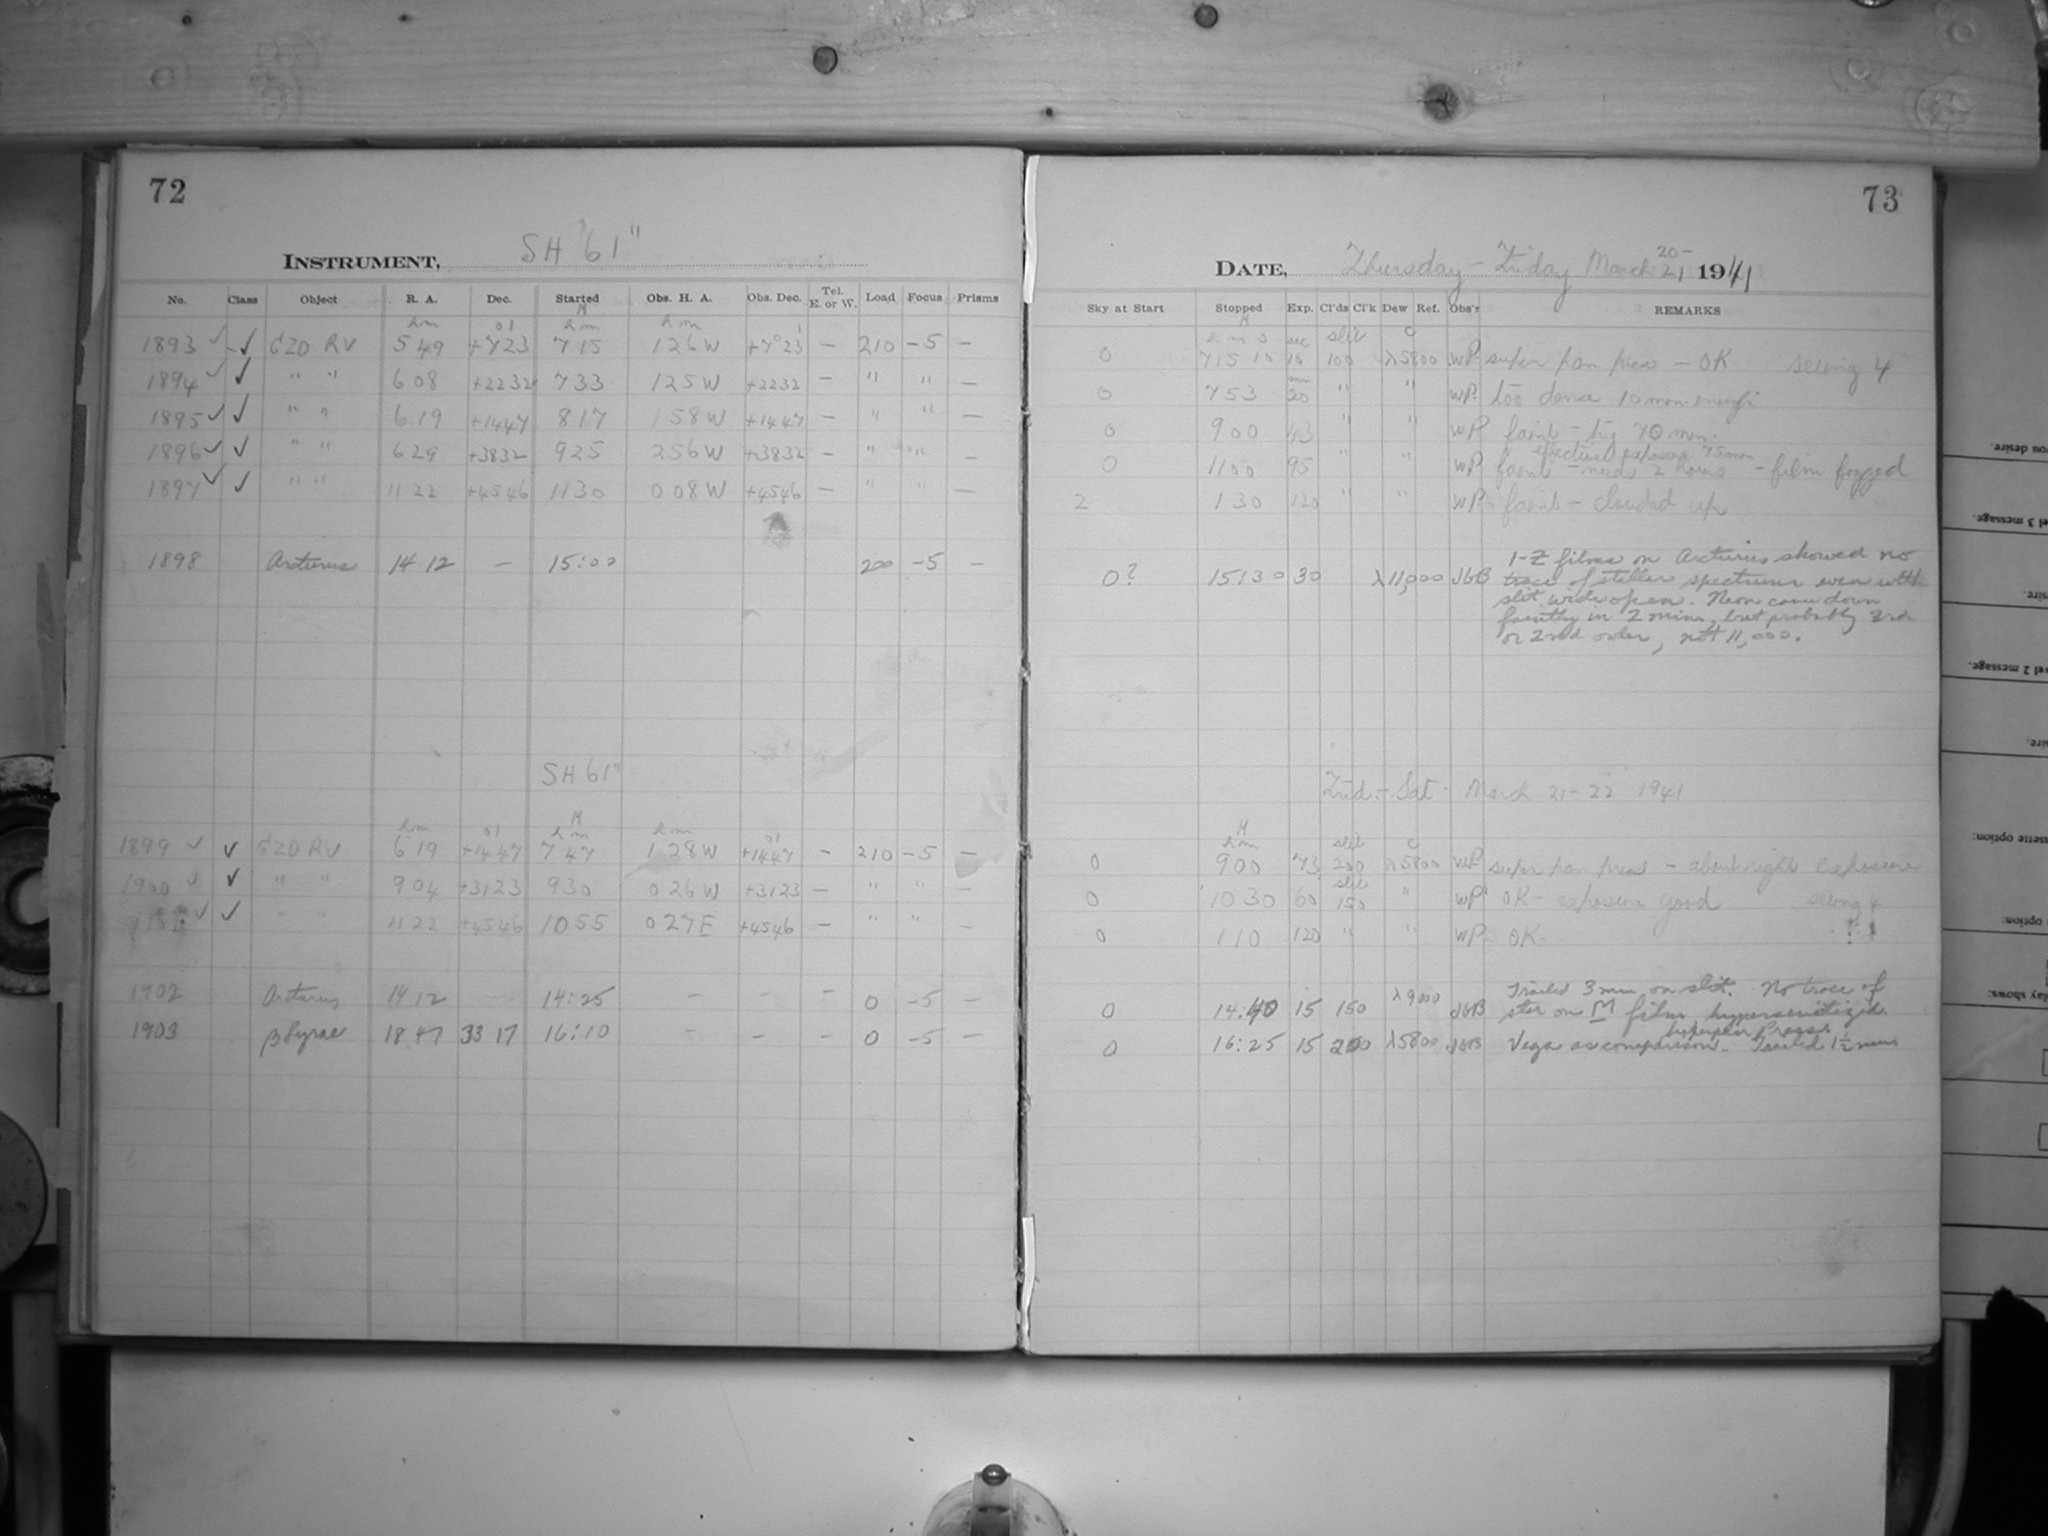 72
INSTRUMENT, SH 61"
No. Class Object R. A. Dec. Started Obs. H. A. Obs. Dec. Tel. E. or W. Load Focus Prisms
h m ° ' h m h m '
1893 ✓ ✓ GZD RV 5 49 +7 23 7 15 1 26 W +7°23 — 210 -5 —
1894 ✓ ✓ " " 6 08 +22 32 7 33 1 25 W +22 32 — " " —
1895 ✓ ✓ " " 6 19 +14 47 8 17 1 58 W +14 47 — " " —
1896 ✓ ✓ " " 6 29 +38 32 9 25 2 56 W +38 32 — " " —
1897 ✓ ✓ " " 11 22 +45 46 11 30 0 08 W +45 46 — " " —
1898 Arcturus 14 12 — 15:00 200 -5 —
SH 61"
h m ° ' h m h m ° '
1899 ✓ ✓ GZD RV 6 19 +14 47 7 47 1 28 W +14 47 — 210 -5 —
1900 ✓ ✓ " " 9 04 +31 23 9 30 0 26 W +31 23 — " " —
✓ ✓ " " 11 22 +45 46 10 55 0 27 E +45 46 — " " —
1902 Arcturus 14 12 — 14:25 — — — 0 -5 —
1903 β Lyrae 18 47 33 17 16:10 — — — 0 -5 —
73
DATE, Thursday - Friday March 20-21 1941
Sky at Start Stopped Exp. Cl'ds Cl'k Dew Ref. Obs'r REMARKS
h m s sec slit
0 7 15 10 10 100 λ5800 WP super pan press - OK seeing 4
0 7 53 min 20 " " WP too dense 10 min. enough
0 9 00 43 " " WP faint - try 70 min.
effective exposure 75 min
0 11 00 95 " " WP faint - needs 2 hours - film fogged
2 1 30 120 " " WP faint - clouded up
0? 15:30 30 λ11,000 JGB 1-Z films on Arcturus showed no
trace of stellar spectrum even with
slit wide open. Neon came down
faintly in 2 mins, but probably 3rd
or 2nd order, not 11,000.
Frid. - Sat - March 21-22 1941
h m slit
0 9 00 73 200 λ5800 WP super pan press - about right exposure
slit
0 10 30 60 150 " WP OK - exposure good seeing 4
0 1 10 120 " " WP OK
0 14:40 15 150 λ9000 JGB Trailed 3 mm on slit. No trace of
star on M film hypersensitized.
hyperpan Press.
0 16:25 15 200 λ5800 JGB Vega as comparison. Trailed 1½ mm